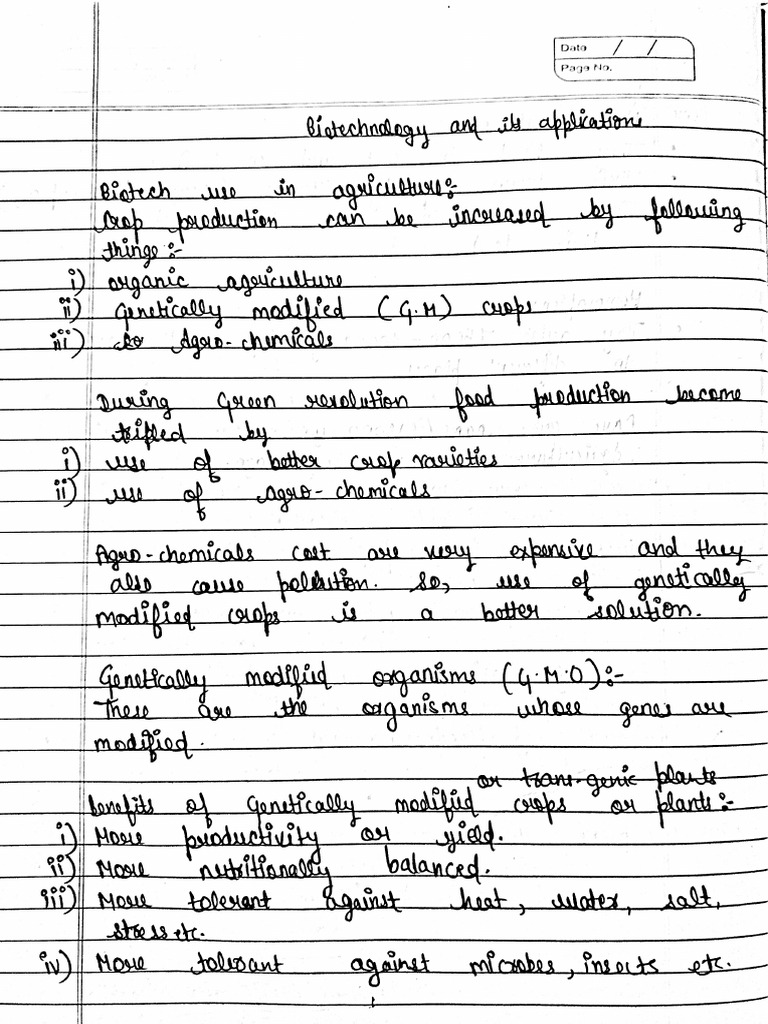 Date / /
Page No.
Biotechnology and its applications
Biotech use in agriculture:-
Crop production can be increased by following
things:-
i) organic agriculture
ii) Genetically modified (G.M) crops
iii) Agro-chemicals
During Green revolution food production become
tripled by
i) use of better crop varieties
ii) use of Agro-chemicals
Agro-chemicals cost are very expensive and they
also cause pollution. So, use of genetically
modified crops is a better solution.
Genetically modified organisms (G.M.O):-
These are the organisms whose genes are
modified.
or trans-genic plants
Benefits of Genetically modified crops or plants:-
i) More productivity or yield.
ii) More nutritionally balanced.
iii) More tolerant against heat, water, salt,
stress etc.
iv) More tolerant against microbes, insects etc.